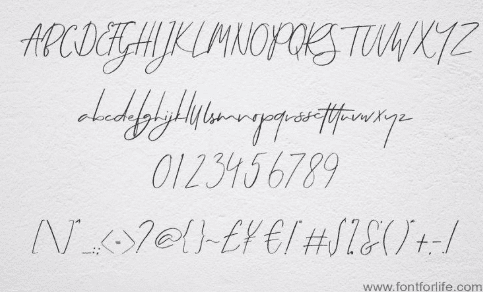 ABCDEFGHIJKLMNOPQRSTUVWXYZ
abcdefghijklllsmnopqrsssetttuvwxyz
0123456789
[\]"_.:;<->?@{}~£¥€!"#$%&()*+,-./
www.fontforlife.com